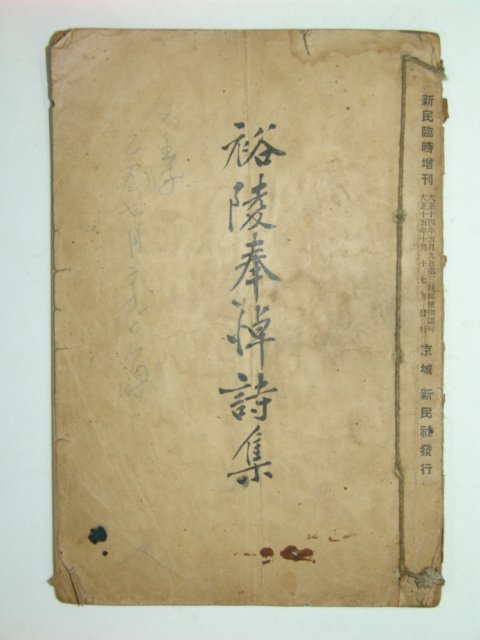 新民臨時增刊 大正十四年五月九日第三種郵便物認可 大正十五年十月十七日發行 京城 新民社發行
裕陵奉悼詩集